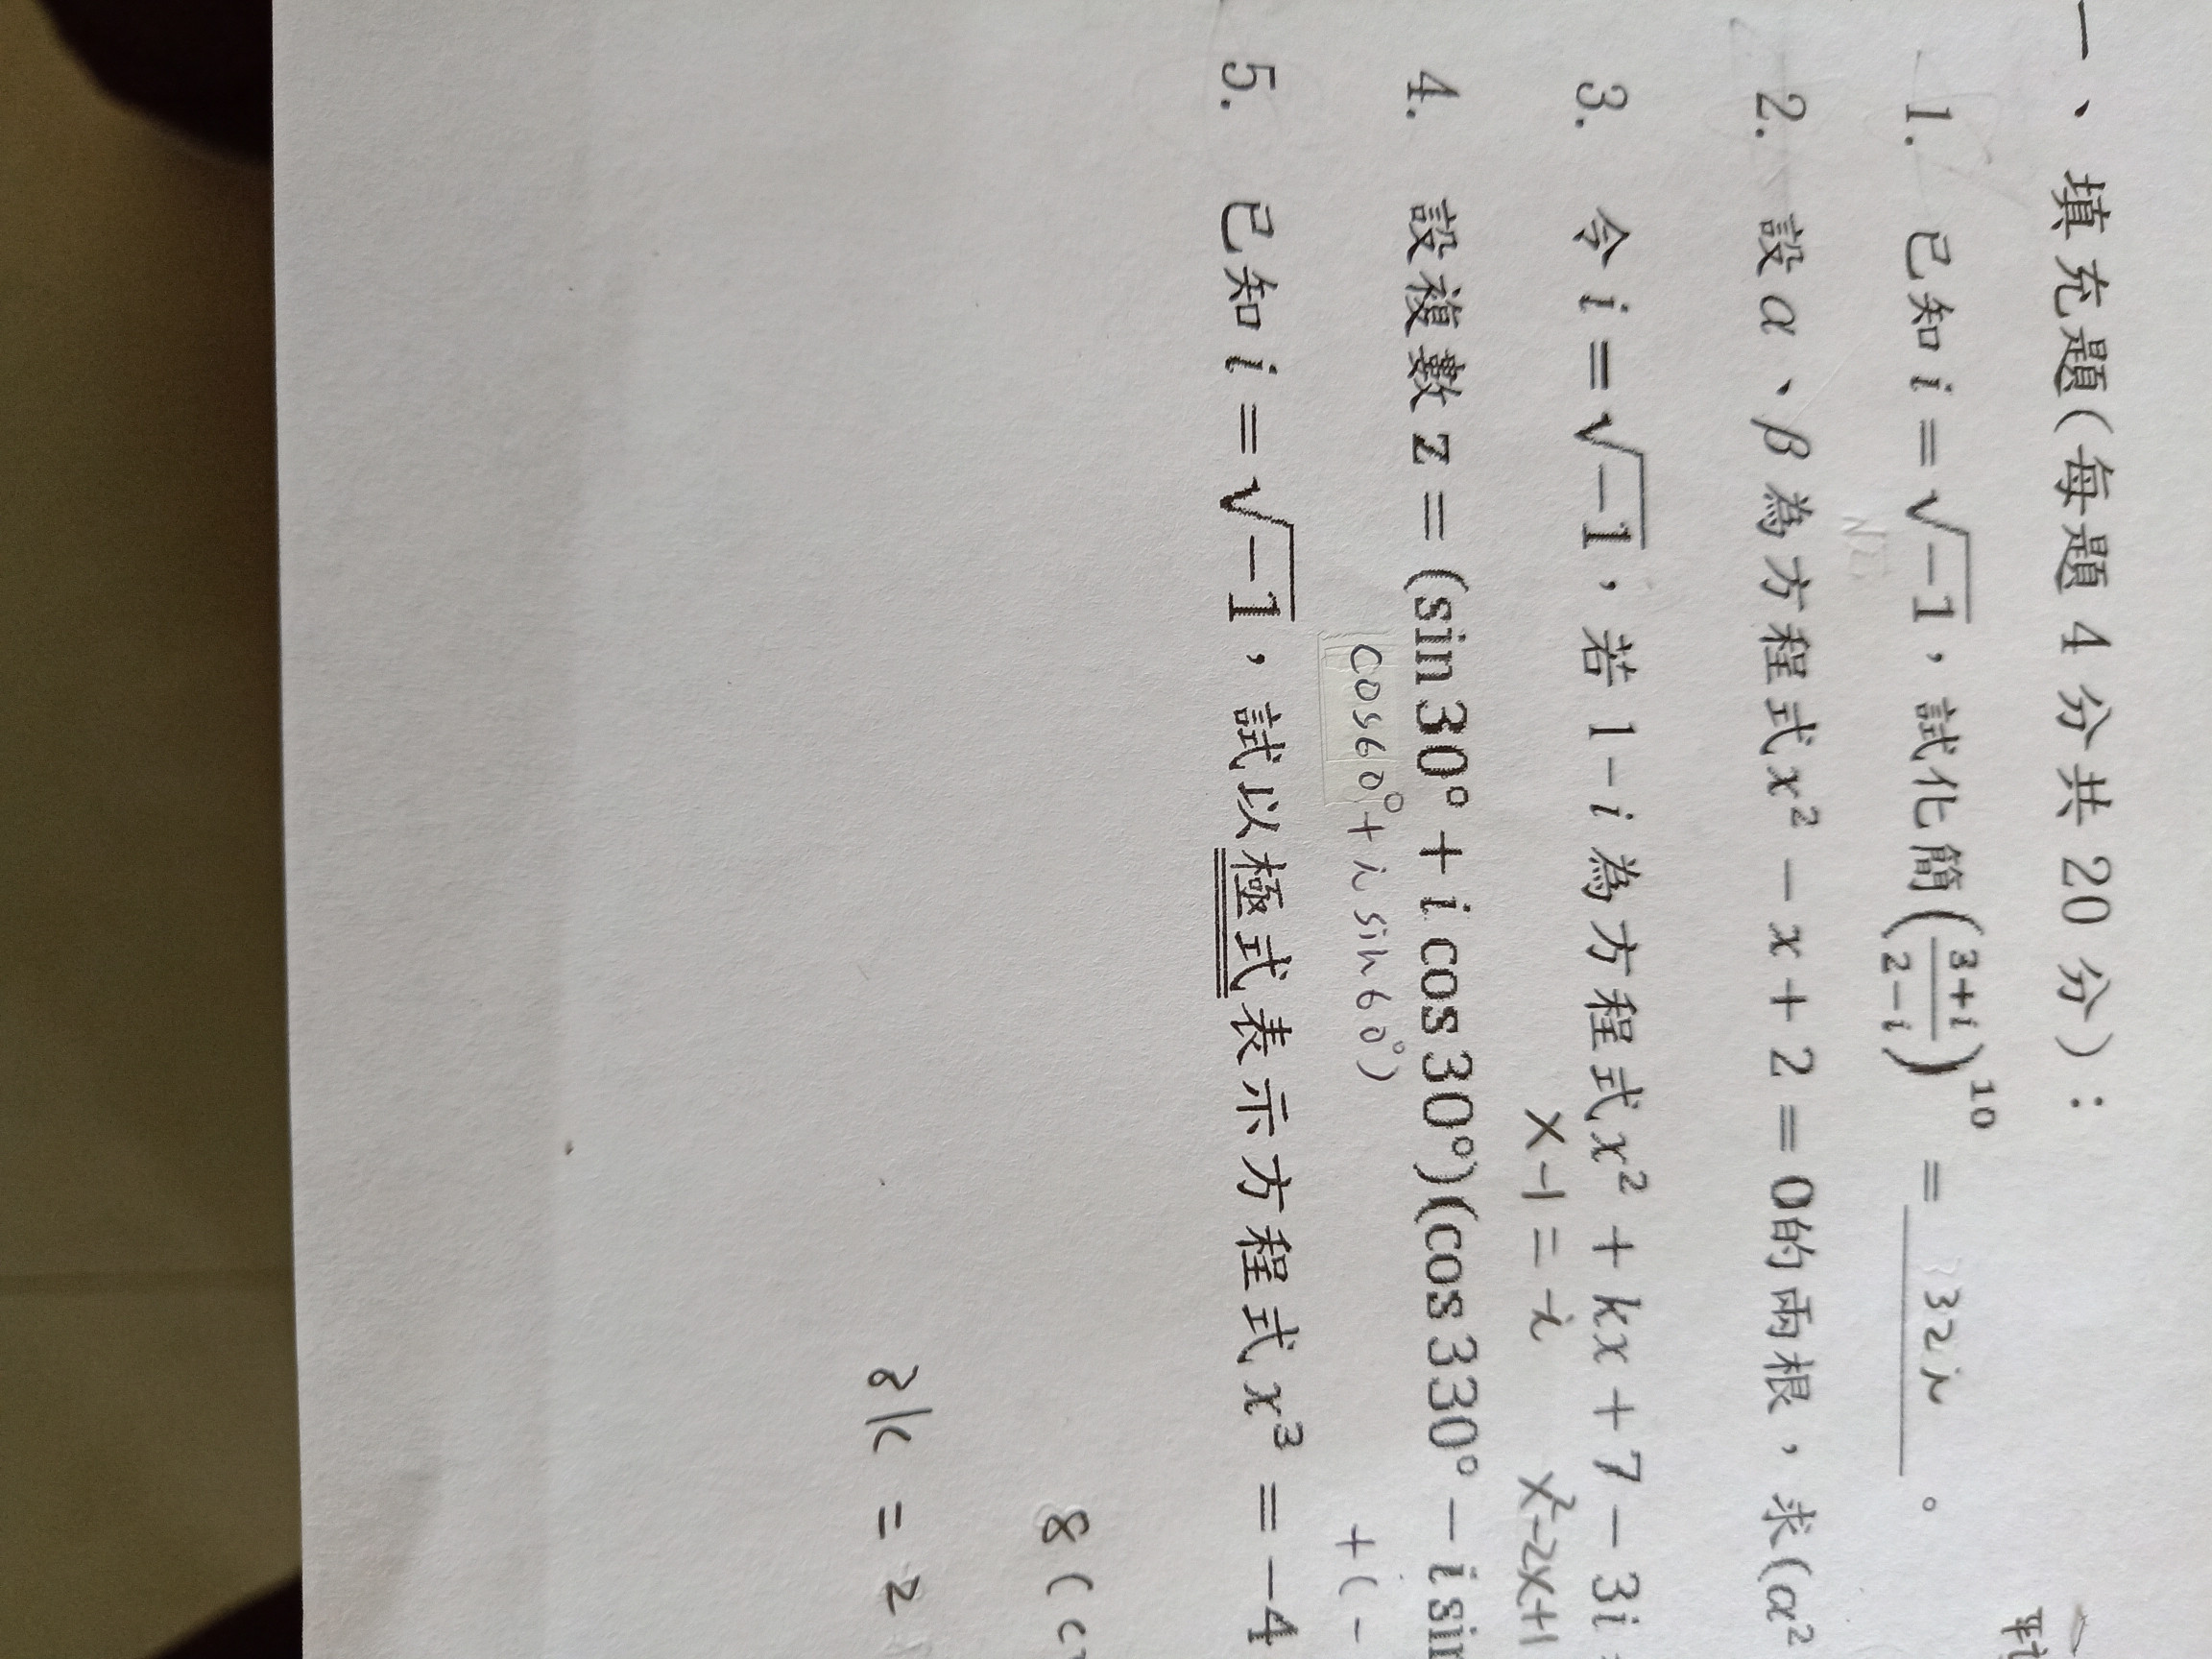 一、填充題(每題 4 分共 20 分):
1. 已知 i = √-1,試化簡(3+i/2-i)^10 = 32i 。
2. 設 α、β 為方程式 x² - x + 2 = 0 的兩根,求(α²
3. 令 i = √-1,若 1-i 為方程式 x² + kx + 7 - 3i
x-1 = -i x²-2x+1
4. 設複數 z = (sin 30° + i cos 30°)(cos 330° - i sin
cos60° + i sin60°) + ( -
5. 已知 i = √-1,試以極式表示方程式 x³ = -4
8 (
= 2